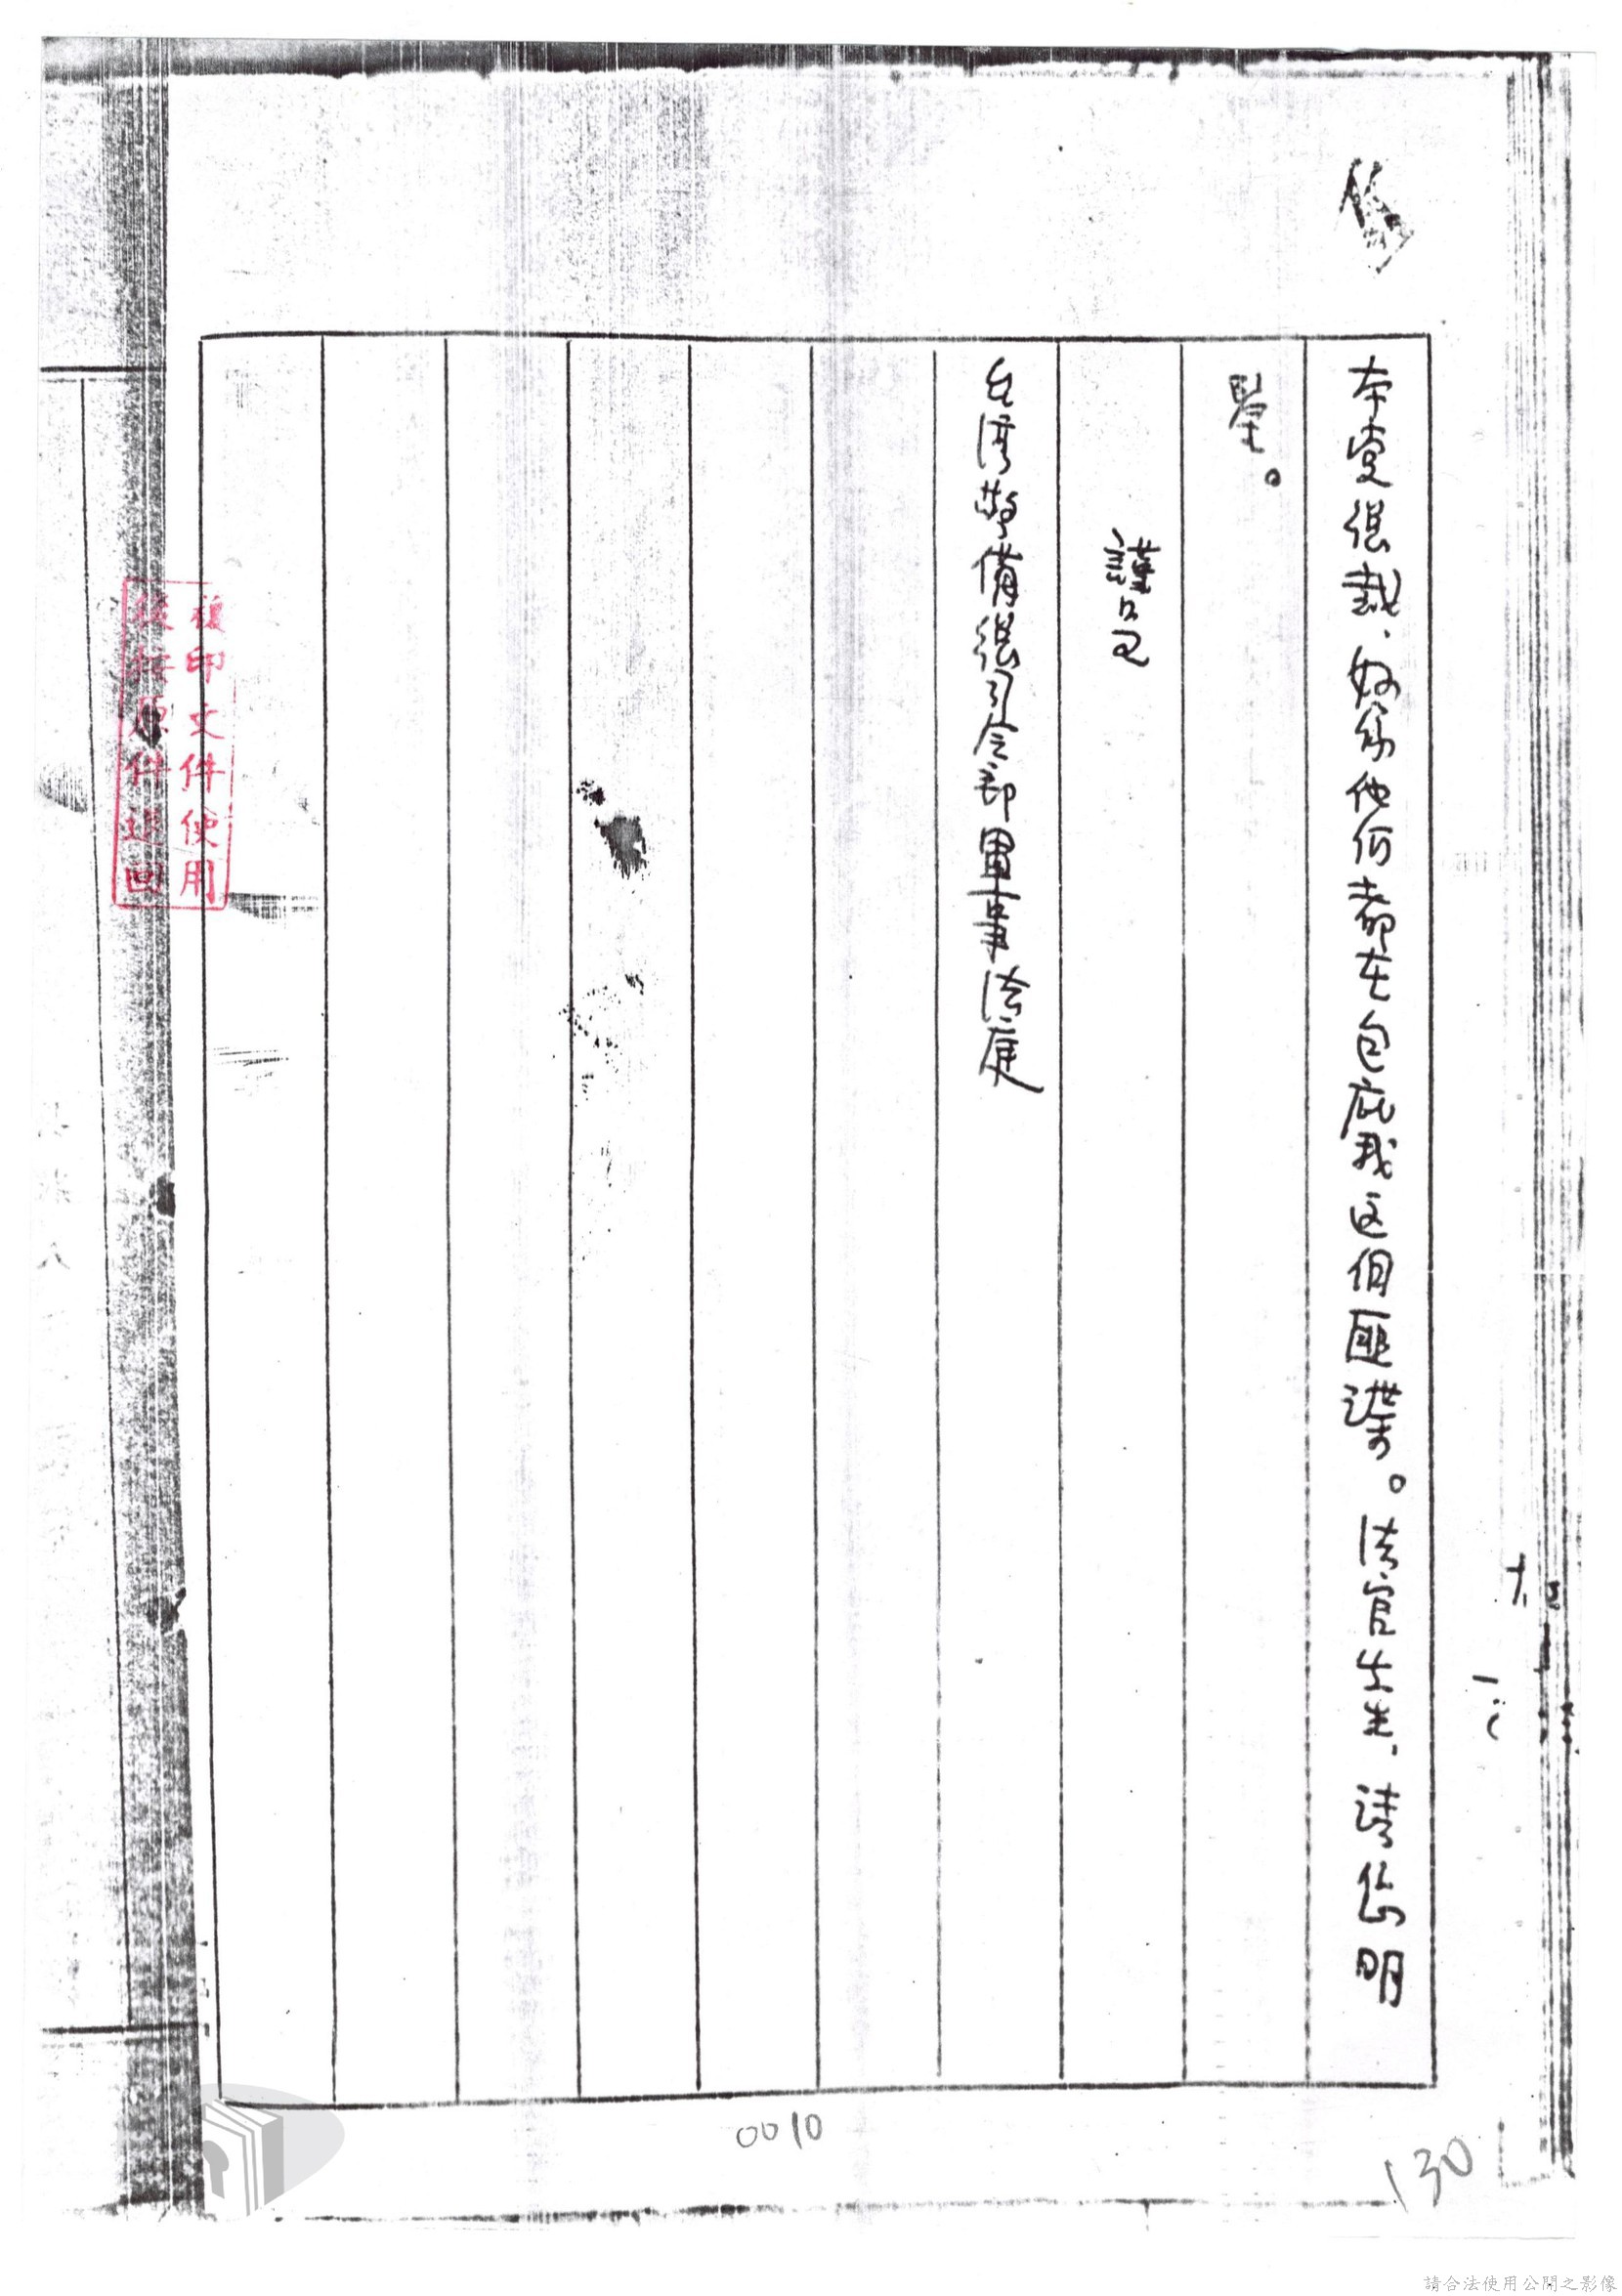 本党總裁、好像他们都在包庇我这個匪諜。法官先生、請您明
鋻。
謹呈
台湾警備總司令部軍事法庭
複印文件使用
後按原件退回
0010
130
請合法使用公開之影像